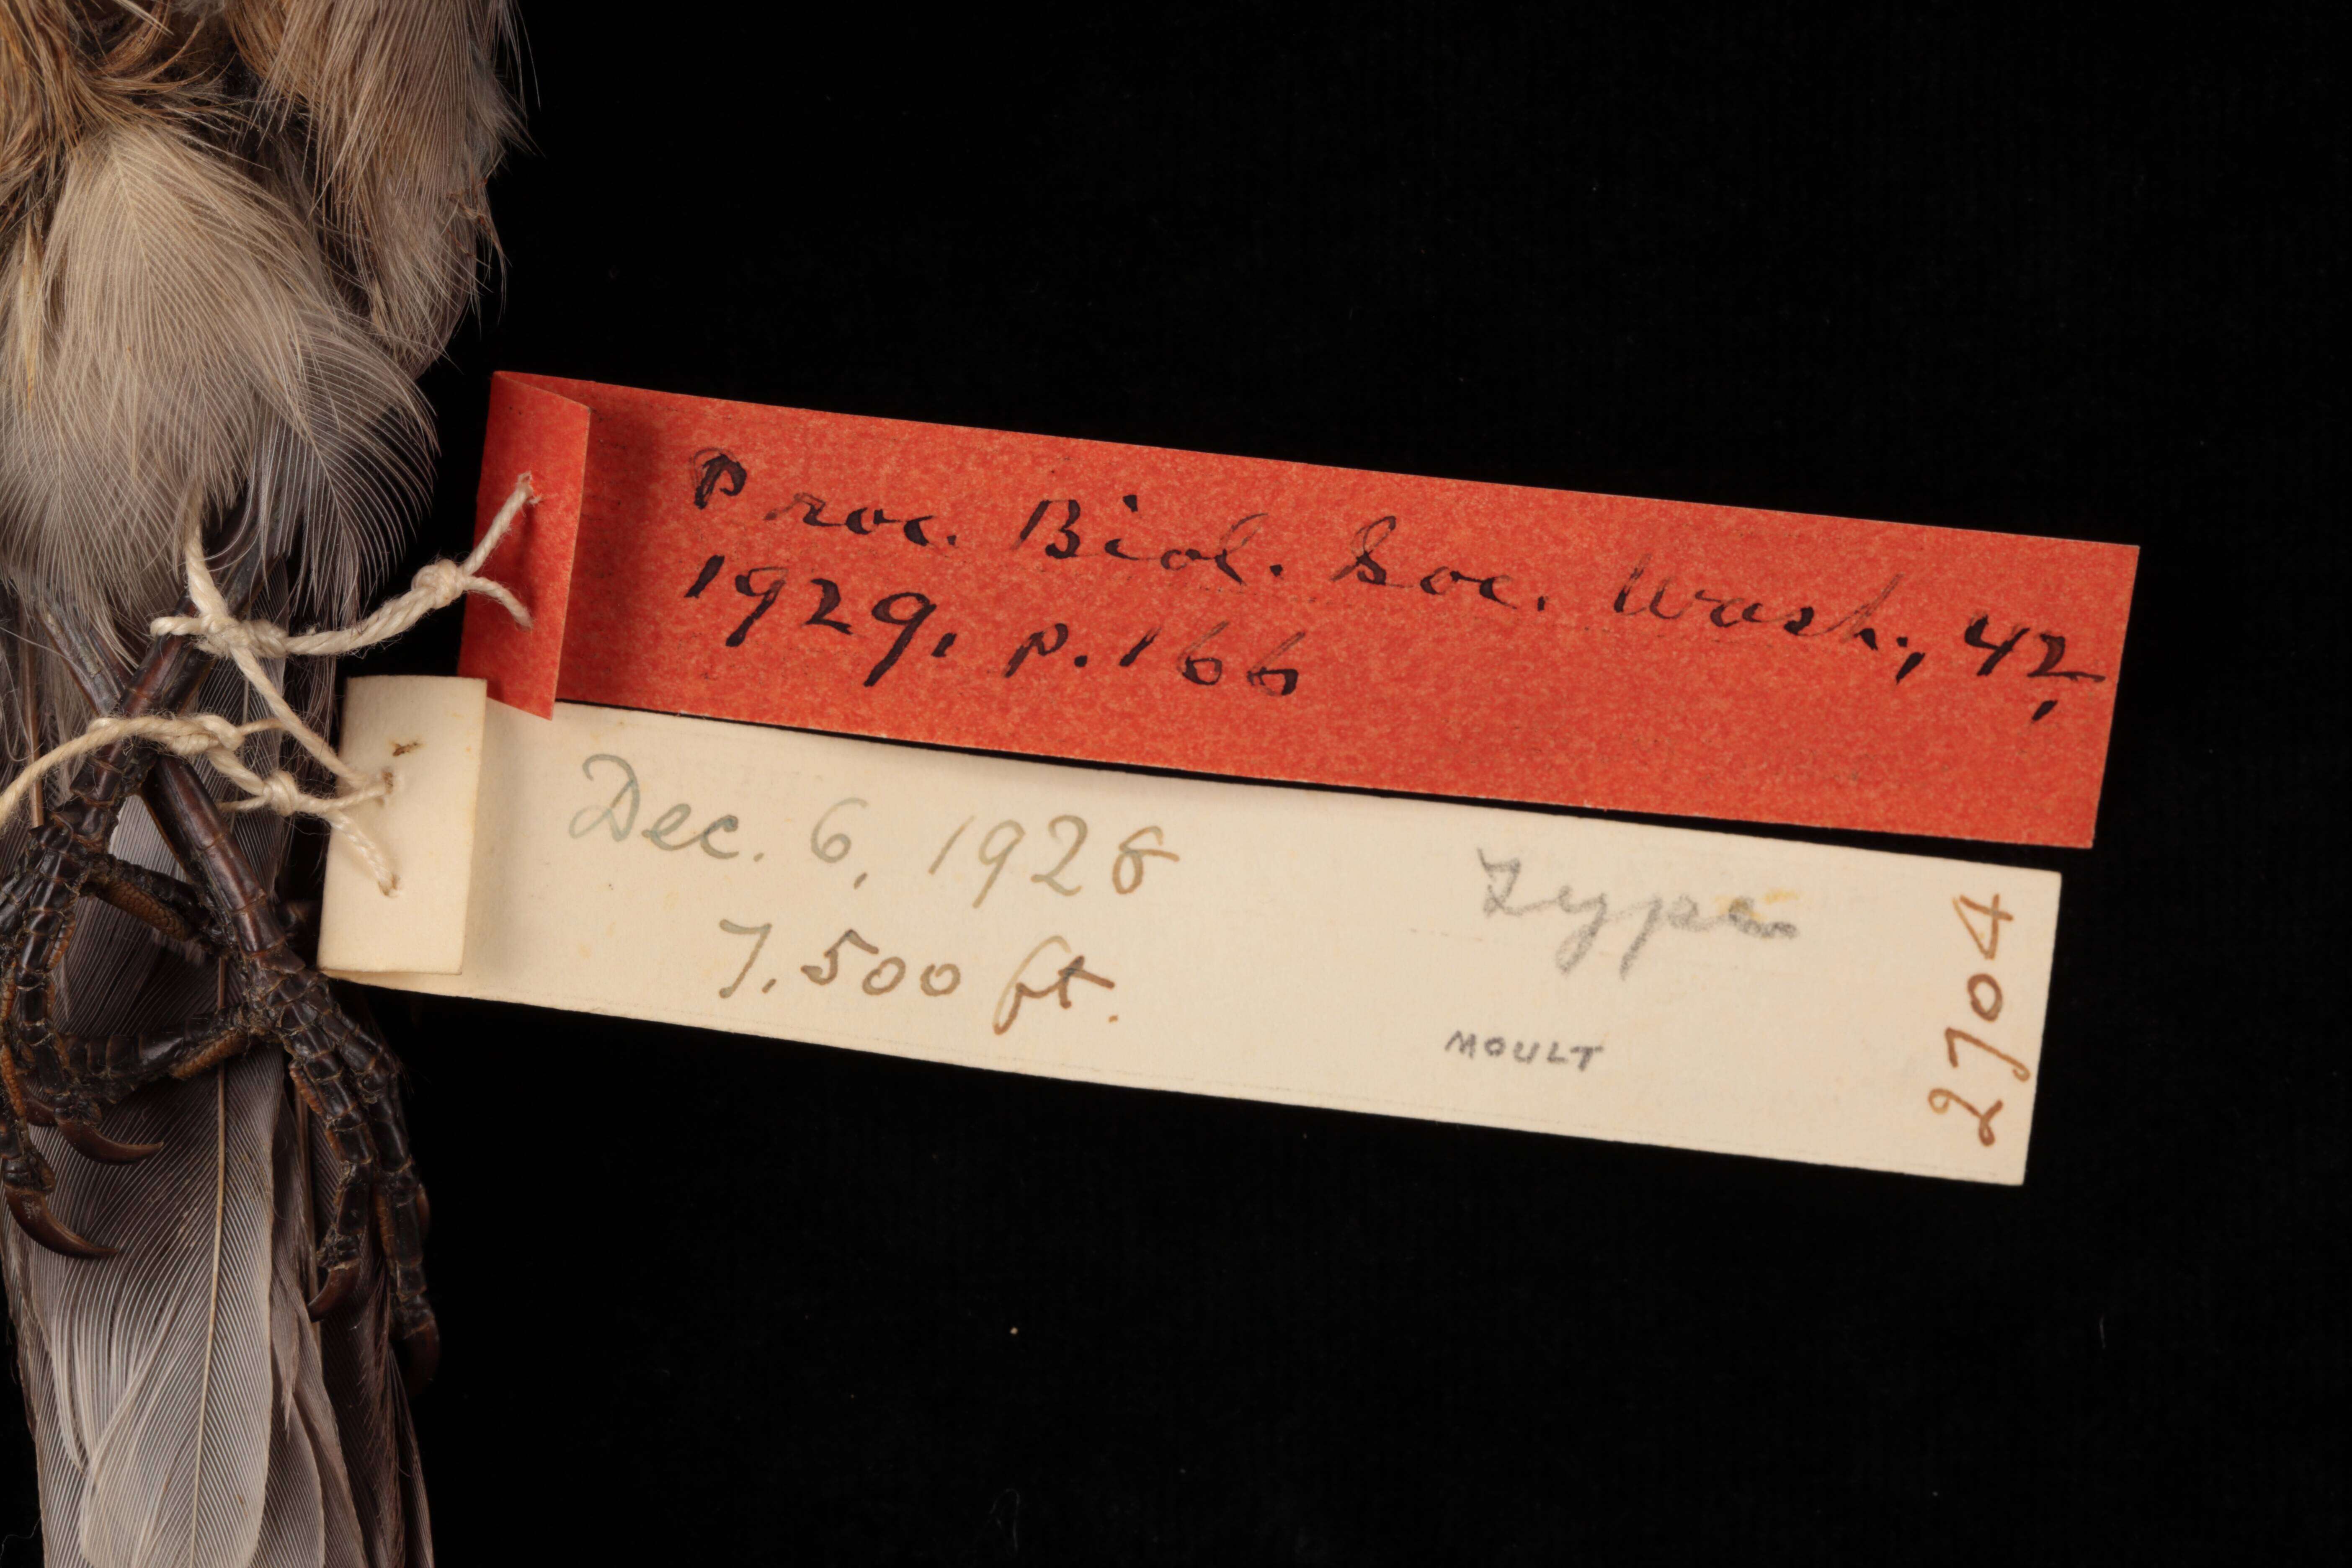 Proc. Biol. Soc. Wash., 42,
1929, p. 166
Dec. 6, 1928
7.500 ft.
Type
MOULT
2704